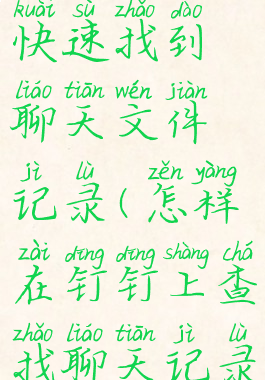 kuài sù zhǎo dào
快速找到
liáo tiān wén jiàn
聊天文件
jì lù zěn yàng
记录(怎样
zài dīng dīng shàng chá
在钉钉上查
zhǎo liáo tiān jì lù
找聊天记录